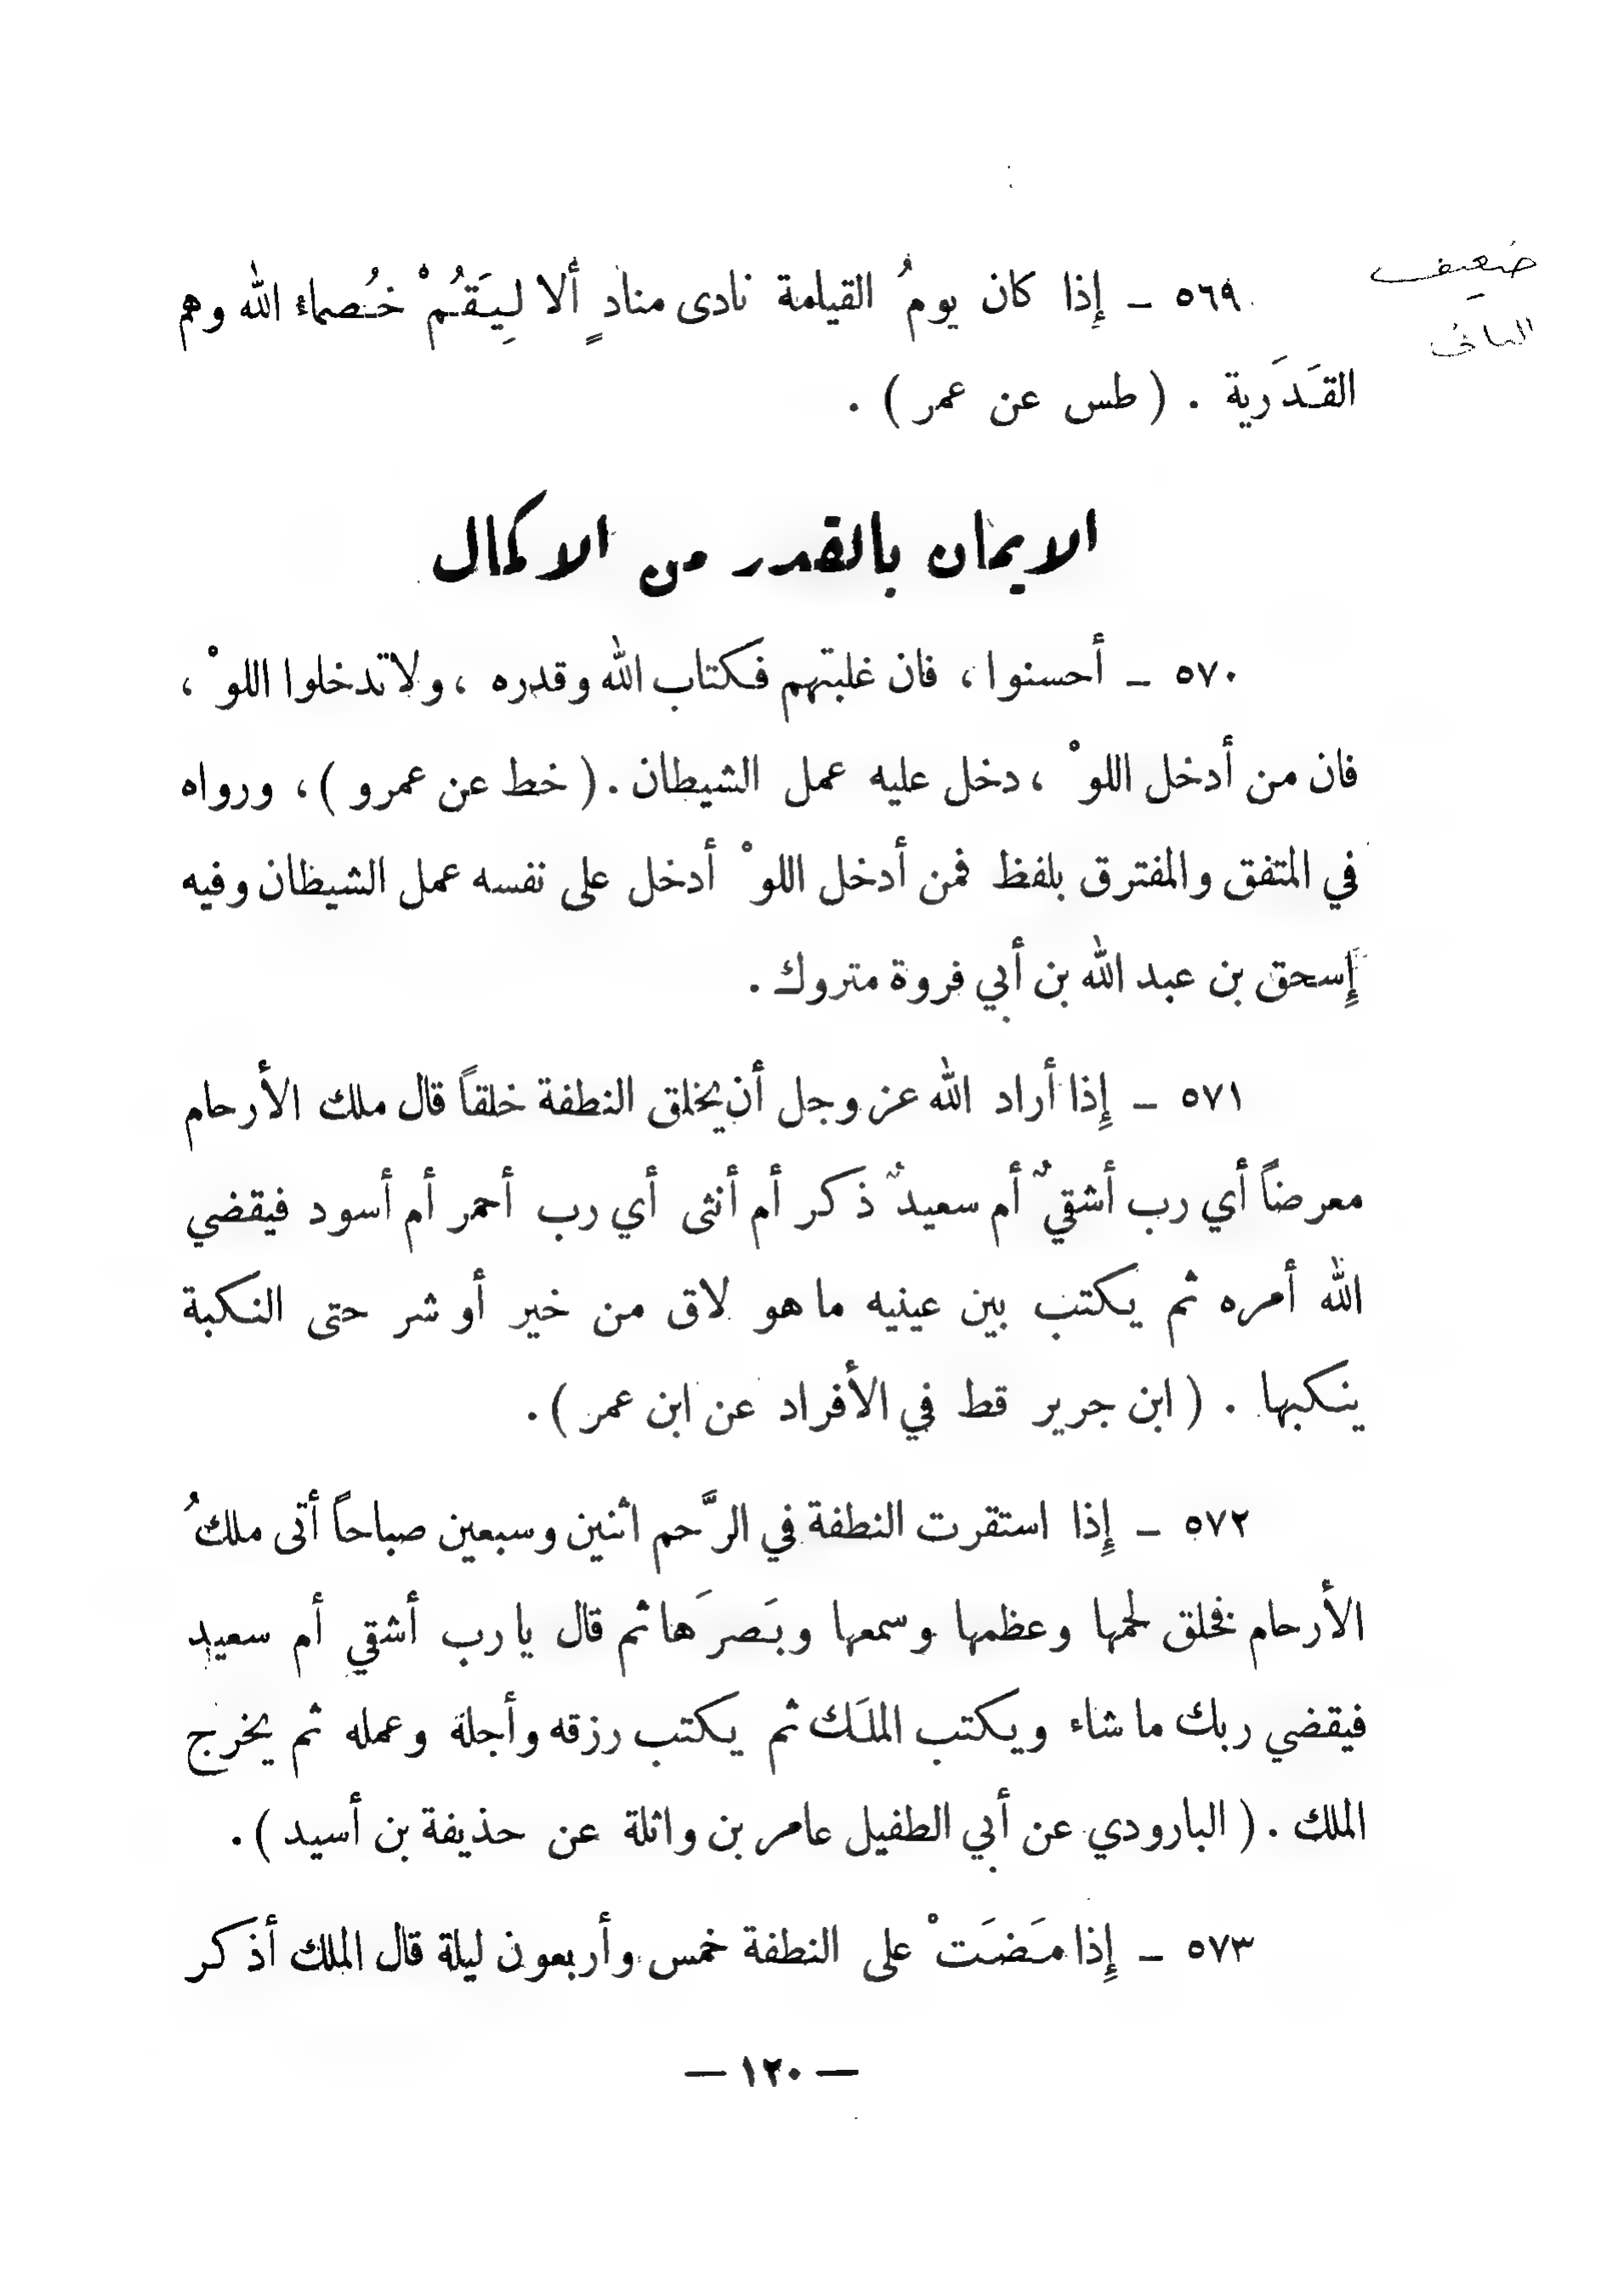 ضعيف
٥٦٩ ـ إِذا كان يومُ القيامة نادى منادٍ ألا لِيَقُمْ خُصماء الله وهم
القَدَرية . ( طس عن عمر ) .
الايمان بالقدر من الاكمال
٥٧٠ ـ أحسنوا ، فان غلبتهم فكتاب الله وقدره ، ولا تدخلوا اللوْ ،
فان من أدخل اللوْ ، دخل عليه عمل الشيطان . ( خط عن عمرو ) ، ورواه
في المتفق والمفترق بلفظ فمن أدخل اللوْ أدخل على نفسه عمل الشيظان وفيه
إِسحق بن عبد الله بن أبي فروة متروك .
٥٧١ ـ إِذا أراد الله عز وجل أن يخلق النطفة خلقاً قال ملك الأرحام
معرضاً أي رب أشقيٌ أم سعيدٌ ذكر أم أنثى أي رب أحمر أم أسود فيقضي
الله أمره ثم يكتب بين عينيه ما هو لاق من خير أو شر حتى النكبة
ينكبها . ( ابن جرير قط في الأفراد عن ابن عمر ) .
٥٧٢ ـ إِذا استقرت النطفة في الرَّحم اثنين وسبعين صباحاً أتى ملكُ
الأرحام فخلق لحمها وعظمها وسمعها وبَصرَها ثم قال يا رب أشقي أم سعيد
فيقضي ربك ما شاء ويكتب الملَك ثم يكتب رزقه وأجلة وعمله ثم يخرج
الملك . ( البارودي عن أبي الطفيل عامر بن واثلة عن حذيفة بن أسيد ) .
٥٧٣ ـ إِذا مَضَتْ على النطفة خمس وأربعون ليلة قال الملك أذكر
— ١٢٠ —